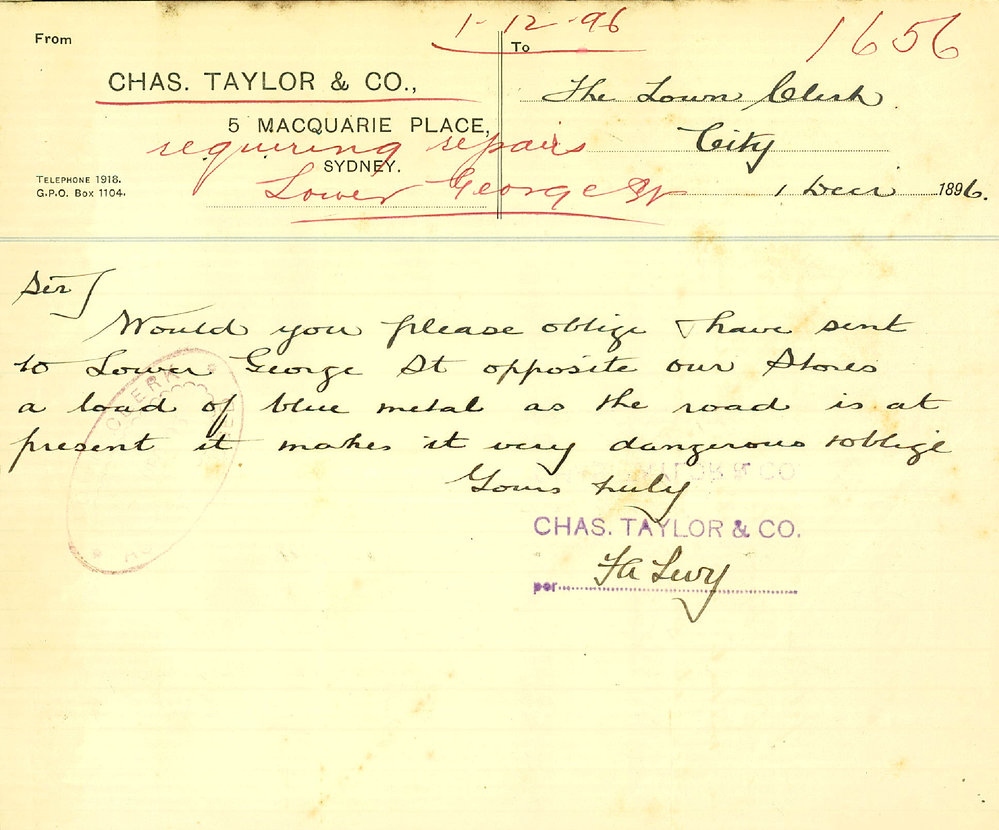 1-12-96
1656
From
To
CHAS. TAYLOR & CO.,
The Town Clerk
5 MACQUARIE PLACE,
City
requiring repairs
SYDNEY.
TELEPHONE 1918.
G.P.O. Box 1104.
Lower George St
1 Decr 1896.
Sir
Would you please oblige & have sent
to Lower George St opposite our Stores
a load of blue metal as the road is at
present it makes it very dangerous & oblige
Yours truly
CHAS. TAYLOR & CO.
per FA Levy
CLERK